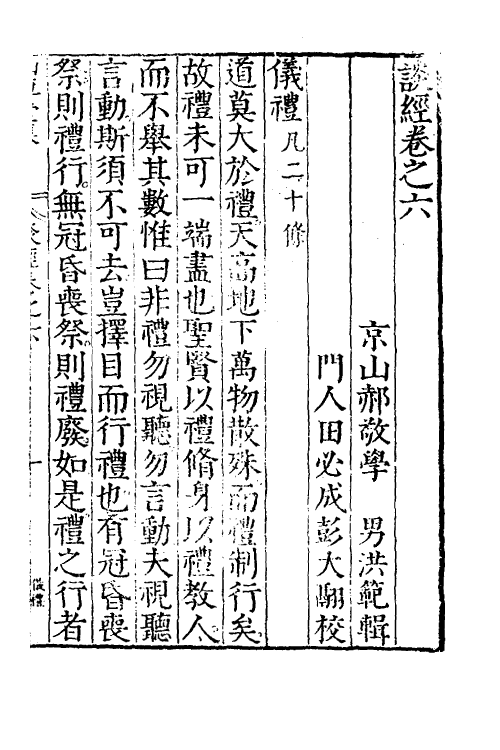 談經卷之六
京山郝敬學　男洪範輯
門人田必成彭大翮校
儀禮凡二十條
道莫大於禮天高地下萬物散殊而禮制行矣
故禮未可一端盡也聖賢以禮脩身以禮教人
而不舉其數惟曰非禮勿視聽勿言動夫視聽
言動斯須不可去豈擇目而行禮也有冠昏喪
祭則禮行無冠昏喪祭則禮廢如是禮之行者
談經卷之六
儀禮